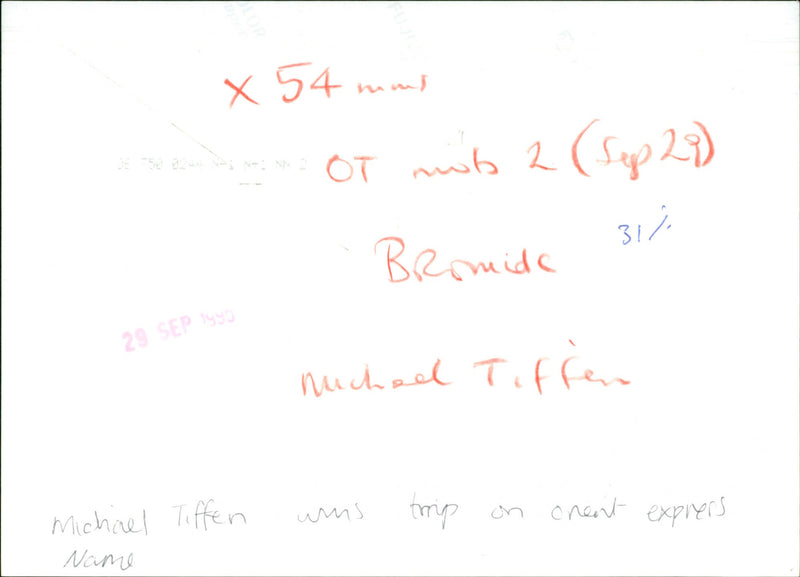 x 54 mms
OT mob 2 (Sep 29)
31%
Bromide
29 SEP 1990
Michael Tiffen
Michael Tiffen wins trip on orient express
Name